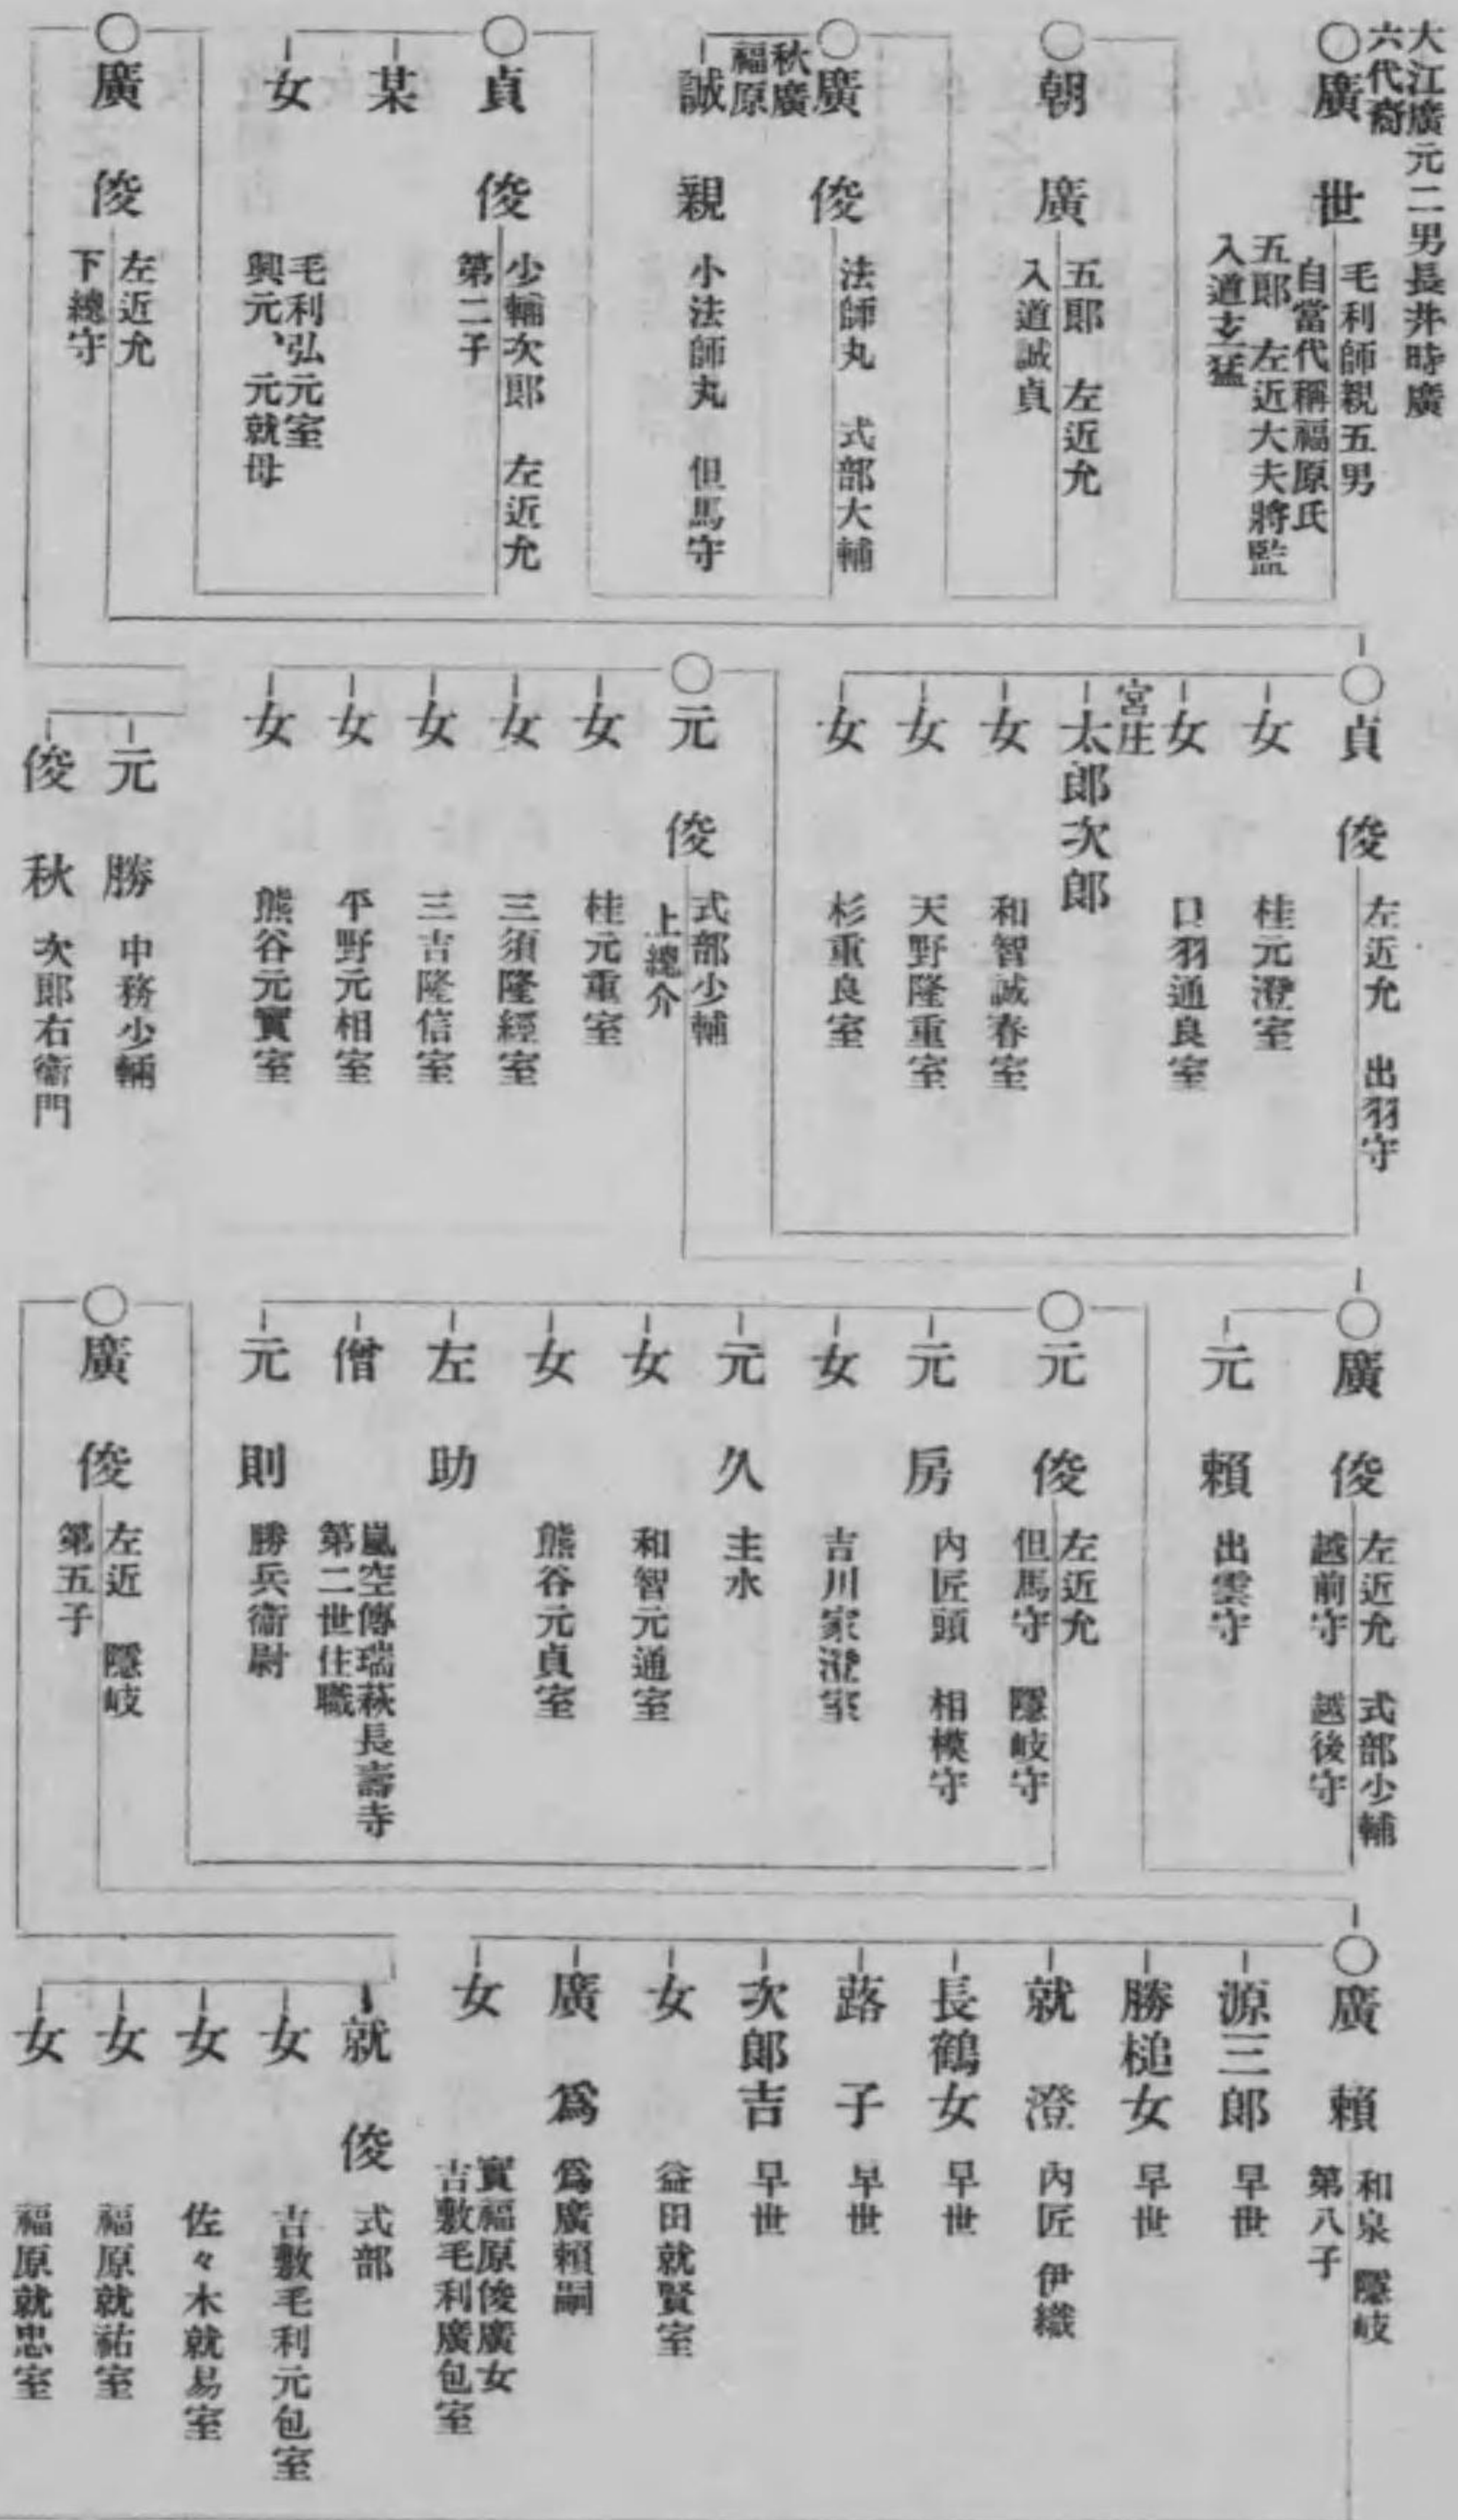 大江廣元二男長井時廣
六代裔
○廣世
毛利師親五男
自當代稱福原氏
五郎 左近大夫將監
入道玄猛
○朝廣
五郎 左近允
入道誠貞
○廣俊
法師丸 式部大輔
秋廣
福原
誠親
小法師丸 但馬守
○貞俊
少輔次郎 左近允
第二子
某
女
毛利弘元室
興元、元就母
○廣俊
左近允
下總守
○貞俊
左近允 出羽守
女 桂元澄室
女 口羽通良室
宮庄
太郎次郎
女 和智誠春室
女 天野隆重室
女 杉重良室
○元俊
式部少輔
上總介
女 桂元重室
女 三須隆經室
女 三吉隆信室
女 平野元相室
女 熊谷元實室
元勝 中務少輔
俊秋 次郎右衞門
○廣俊
左近允 式部少輔
越前守 越後守
元賴 出雲守
○元俊
左近允
但馬守 隱岐守
元房 內匠頭 相模守
女 吉川家澄室
元久 主水
女 和智元通室
女 熊谷元貞室
左助
僧
嵐空傳瑞萩長壽寺
第二世住職
元則 勝兵衞尉
○廣俊
左近 隱岐
第五子
○廣賴
和泉 隱岐
第八子
源三郎 早世
勝槌女 早世
就澄 內匠 伊織
長鶴女 早世
蕗子 早世
次郎吉 早世
女 益田就賢室
廣爲 爲廣賴嗣
女
實福原俊廣女
吉敷毛利廣包室
就俊 式部
女 吉敷毛利元包室
女 佐々木就易室
女 福原就祐室
女 福原就忠室